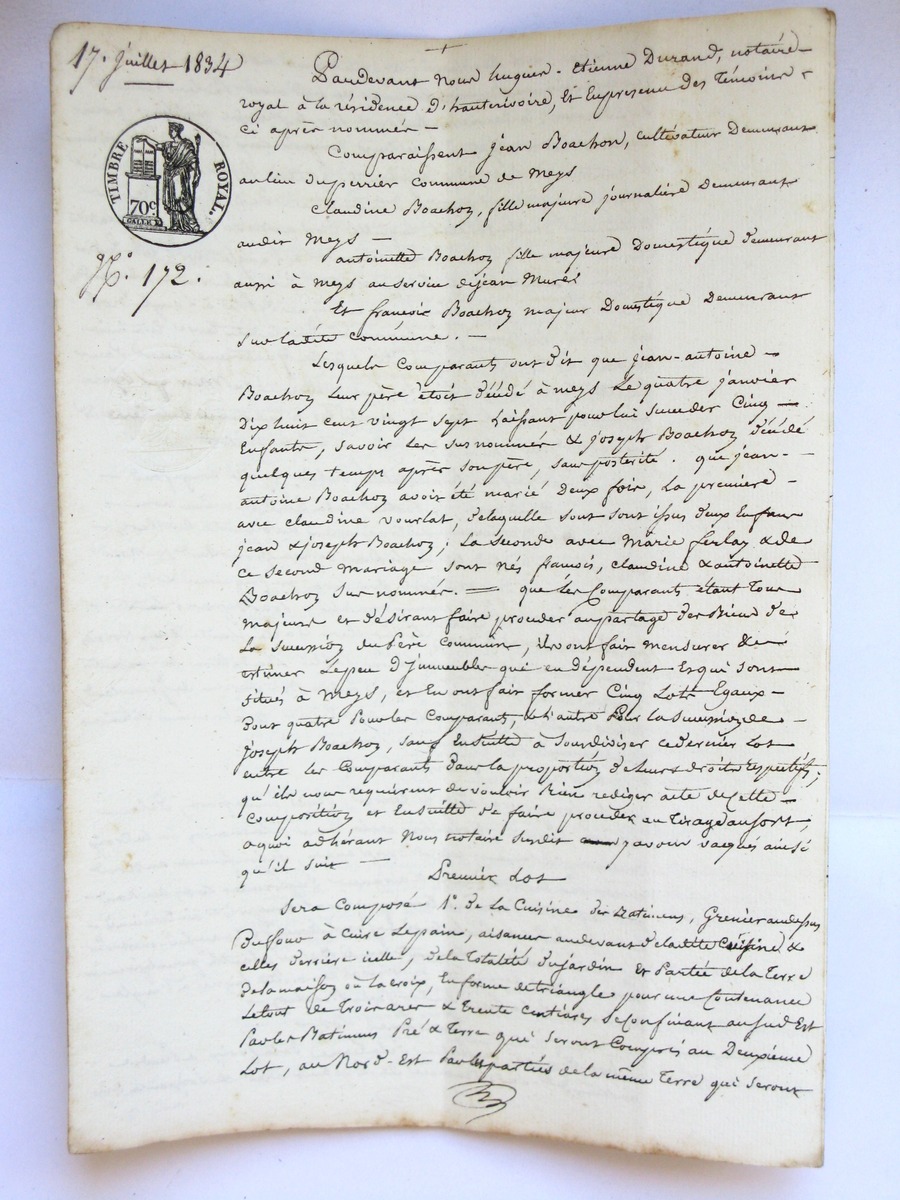 17. Juillet 1834
TIMBRE ROYAL.
70c
N.° 172.
Pardevant Nous hugues-Etienne Durand, notaire
royal à la résidence d'hauterivoire, Et En presence des Témoins
ci après nommés —
Comparaissent jean Boachon, cultivateur Demeurant
au lieu Duperrier Commune de Meys
Claudine Boachoz, fille majeure journalière Demeurant
audit Meys —
antoinette Boachoz fille majeure Domestique demeurant
aussi à Meys au service de jean Muret
Et francois Boachoz majeur Domestique Demeurant
sur ladite commune. —
Lesquels Comparants ont dit que jean-antoine —
Boachoz leur père étoit décédé à meys Le quatre janvier
Dix huit cent vingt sept Laissant pour lui succeder Cinq —
Enfants, savoir les susnommés & joseph Boachoz décédé
quelques temps après son père, sans postérité. que jean-
antoine Boachoz avoit été marié Deux fois, La première —
avec claudine vourlat, de laquelle sont sont issus deux Enfans
jean & joseph Boachoz; La seconde avec Marie ferlay & de
ce second mariage sont nés francois, claudine & antoinette
Boachoz susnommés. = que les Comparants étant Tous
majeurs et désirant faire proceder au partage des Biens de
La succession du Père commun, ils ont fait mensurer &
estimer Le peu d'jmmeubles qui en dépendent Et qui sont
situés à Meys, et En ont fait former Cinq Lots Egaux —
Dont quatre Pour les Comparants, & l'autre Pour la succession de —
joseph Boachoz, sauf Ensuitte à sousdiviser ce dernier Lot
entre les Comparants dans la proportion de leurs droits respectifs;
qu'ils nous requièrent de vouloir Bien rediger acte de Cette —
Composition et Ensuitte de faire proceder au Tirage au sort,
a quoi adhérant Nous notaire susdit y avons vacqués ainsi
qu'il suit —
Premier Lot
Sera Composé 1.° de La Cuisine des Batimens, Grenier au dessus
Du four à Cuire Le pain, aisances audevant de ladite Cuisine &
celles derrière icelle, de la Totalité du jardin Et Partée de la Terre
de la maison ou la croix, En forme de triangle pour une Contenance
Le tout de Trois ares & trente centiares se Confinant au sud Est
Par les Batimens Pré & Terre qui seront Compris au Deuxième
Lot, au Nord-Est Par les parties de la même Terre qui seront